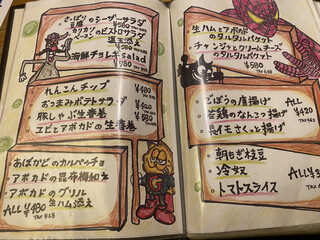 さっぱり
豆腐のシーザーサラダ
¥580
カリカリ
ベーコンのビストロサラダ
海鮮チョレギsalad
¥580
れんこんチップ
おつまみポテトサラダ
¥420
豚しゃぶ生春巻
エビとアボカドの生春巻
¥580
あぼかどのカルパッチョ
アボカドの昆布梅和え
アボカドのグリル
生ハム添え
ALL ¥480
TAX 528
生ハムとアボカド
のタルタルバケット
チャンジャとクリームチーズ
のタルタルバケット
¥580
ごぼうの唐揚げ
若鶏のなんこつ揚げ
長イモさくっと揚げ
ALL
¥420
朝もぎ枝豆
冷奴
トマトスライス
ALL
TAX